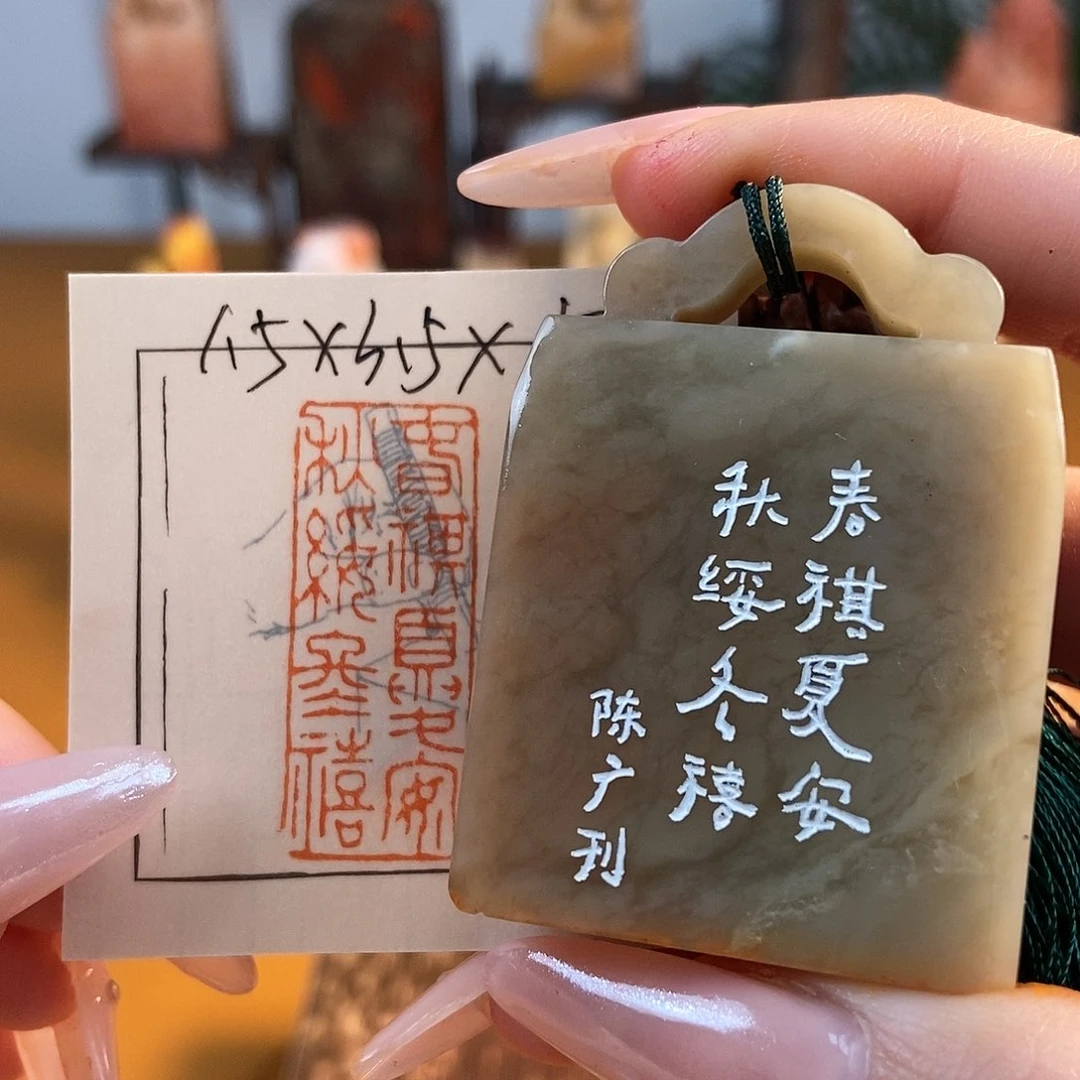 1.5×4.5×
春祺夏安
秋绥冬禧
春祺夏安
秋绥冬禧
陈广刊